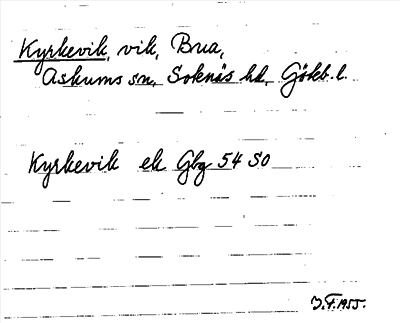 Kyrkevik, vik, Brua,
Askums sn, Sotenäs hd, Göteb. l.
Kyrkevik ek Gbg 54 SO
J.F. 1955.